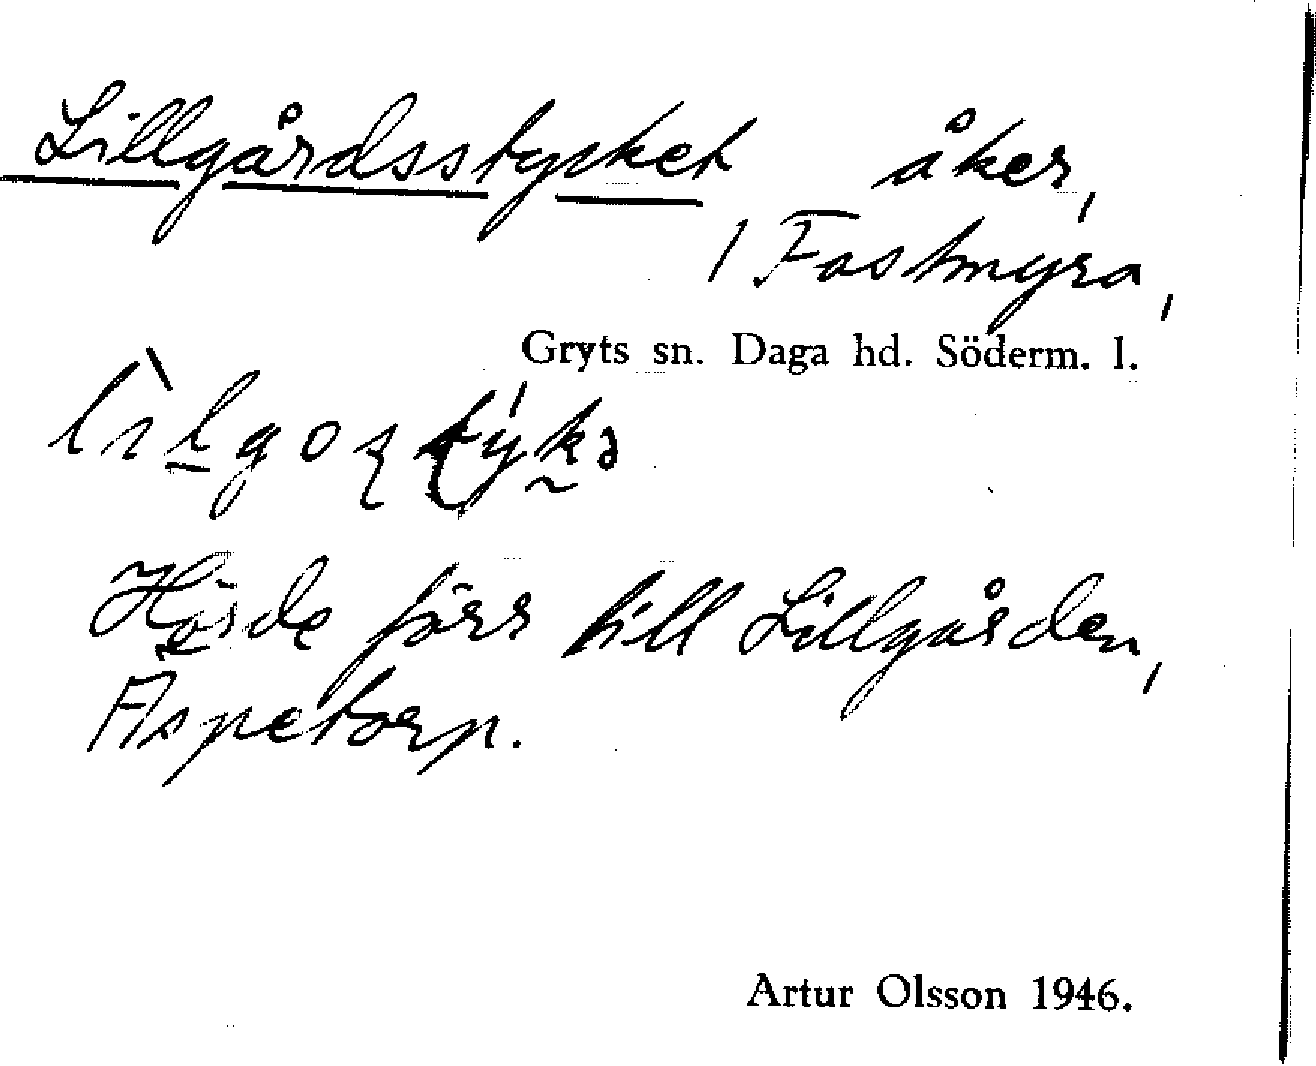 Lillgårdsstycket åker,
1 Fastmyra,
Gryts sn. Daga hd. Söderm. l.
Hörde förr till Lillgården,
Äspetorp.
Artur Olsson 1946.